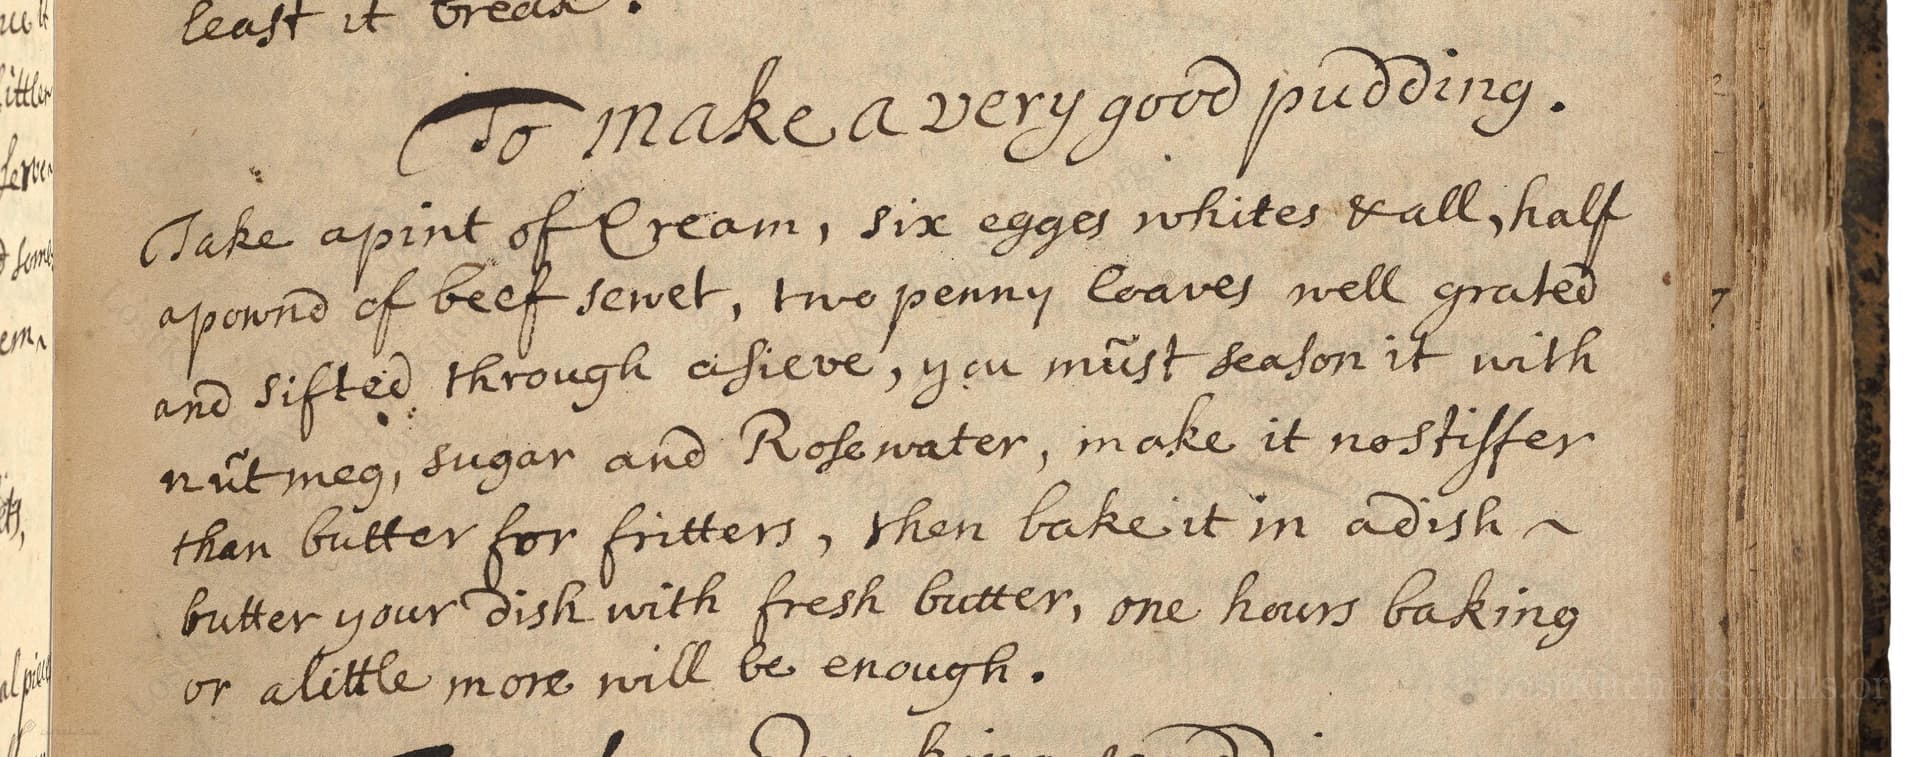 least it break.
To make a very good pudding.
Take a pint of Cream, six egges whites & all, half
a pownd of beef sewet, two penny loaves well grated
and sifted through a sieve, you must season it with
nutmeg, sugar and Rosewater, make it no stiffer
than butter for fritters, then bake it in a dish ~
butter your dish with fresh butter, one hours baking
or a little more will be enough.
LostKitchenScrolls.or